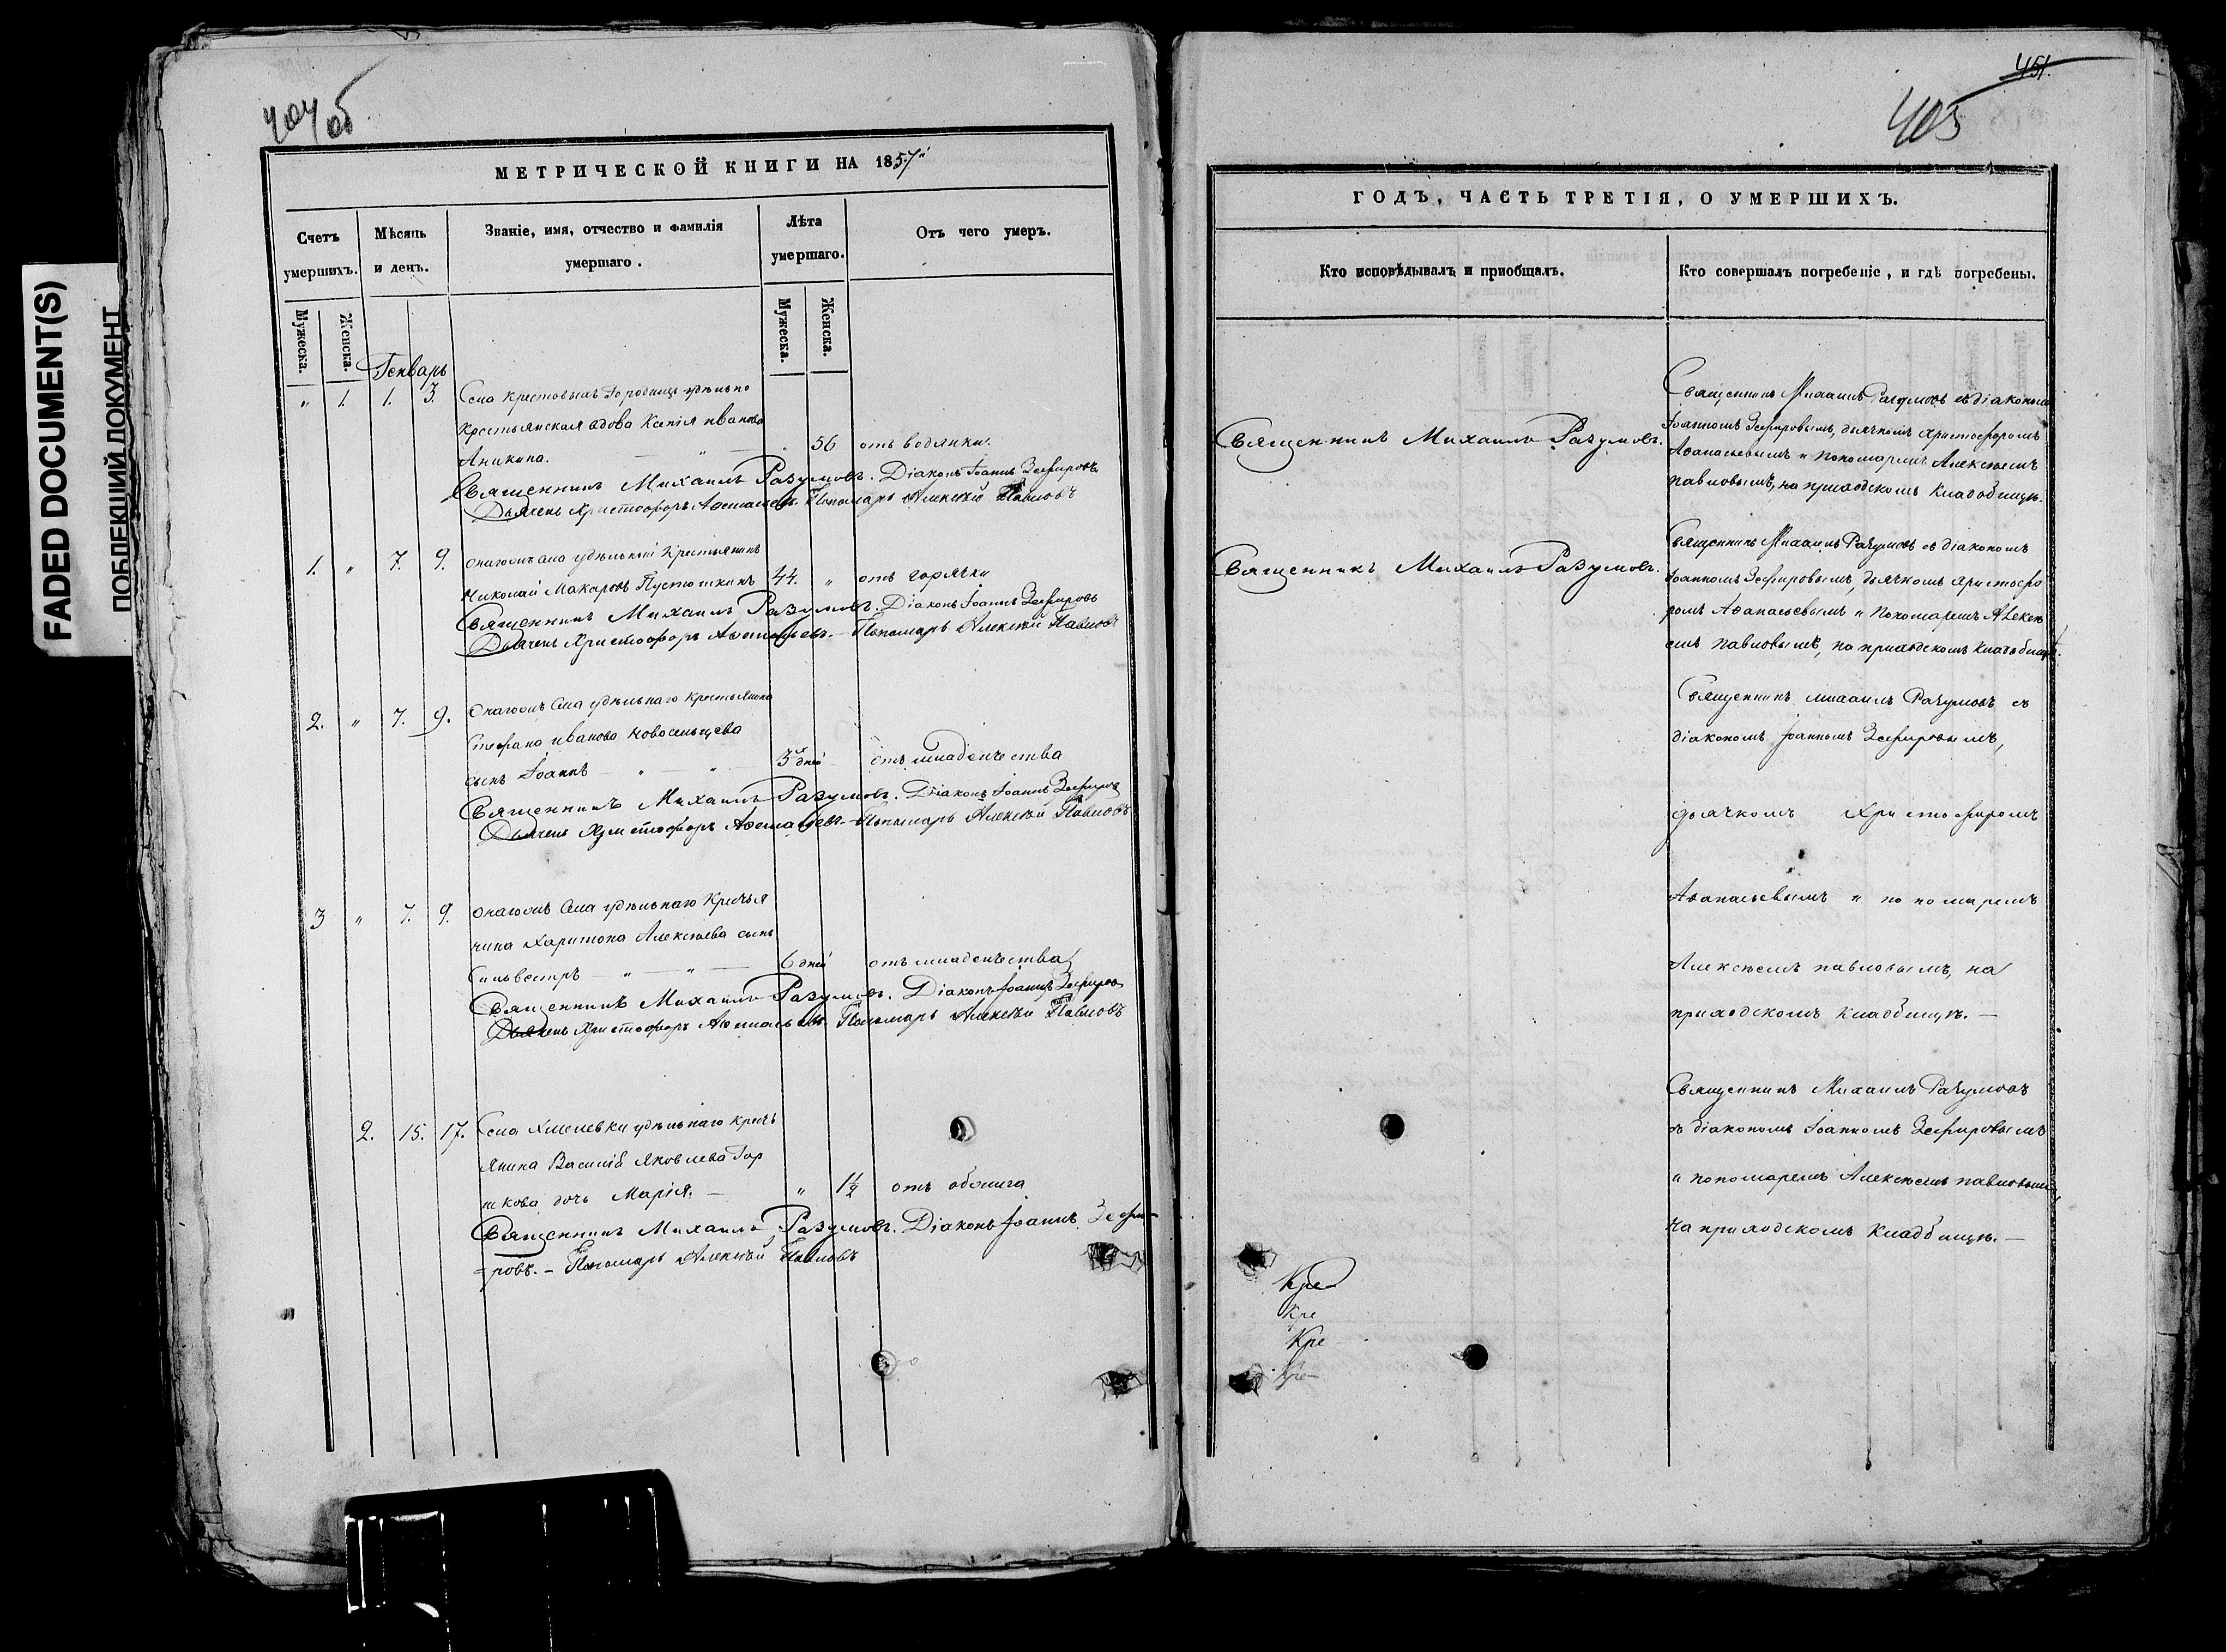 FADED DOCUMENT(S)
ПОБЛЕКШИЙ ДОКУМЕНТ
404 об
МЕТРИЧЕСКОЙ КНИГИ НА 1857й
Счетъ умершихъ.
Мѣсяць и день.
Званіе, имя, отчество и фамилія умершаго.
Лѣта умершаго.
Отъ чего умеръ.
Мужеска.
Женска.
Мужеска.
Женска.
Генварь
" 1. 1. 3. Села Крестовыхъ Городищь удѣльно
крестьянская вдова Ксенія иванова
Аникина. — " — " 56 отъ водянки.
Священникъ Михаилъ Разумовъ. Діаконъ Іоаннъ Зефировъ
Дьячекъ Христофоръ Аѳанасьевъ. Пономарь Алексѣй Павловъ
1. " 7. 9. Онагожъ села удѣльный крестьянинъ
Николай Макаровъ Пустошкинъ 44. " отъ горячки
Священникъ Михаилъ Разумовъ. Діаконъ Іоаннъ Зефировъ
Дьячекъ Христофоръ Аѳанасьевъ. — Пономарь Алексѣй Павловъ
2. " 7. 9. Онагожъ села удѣльнаго крестьянина
Стефана иванова Новосельцева
сынъ Іоаннъ — " — " — 3х дней отъ младенчества
Священникъ Михаилъ Разумовъ. Діаконъ Іоаннъ Зефировъ
Дьячекъ Христофоръ Аѳанасьевъ. — Пономарь Алексѣй Павловъ
3 " 7. 9. Онагожъ села удѣльнаго Крестья
нина Харитона Алексѣева сынъ
Сильвестръ — " — " — 6 дней отъ младенчества
Священникъ Михаилъ Разумовъ. Діаконъ Іоаннъ Зефировъ
Дьячекъ Христофоръ Аѳанасьевъ. Пономарь Алексѣй Павловъ
2. 15. 17. Села Хмелевки удѣльнаго крест
янина Василія Яковлева Гор
шкова дочь Марія. — " 1½ отъ обжига
Священникъ Михаилъ Разумовъ. Діаконъ Іоаннъ Зефи-
=ровъ. — Пономарь Алексѣй Павловъ
451.
405
ГОДЪ, ЧАСТЬ ТРЕТІЯ, О УМЕРШИХЪ.
Кто исповѣдывалъ и приобщалъ.
Кто совершалъ погребеніе, и гдѣ погребены.
Священникъ Михаилъ Разумовъ.
Священникъ Михаилъ Разумовъ съ діакономъ
Іоанномъ Зефировымъ, дьячкомъ Христофоромъ
Аѳанасьевымъ и пономаремъ Алексѣемъ
павловымъ, на приходскомъ кладбищѣ.
Священникъ Михаилъ Разумовъ.
Священникъ Михаилъ Разумовъ съ діакономъ
Іоанномъ Зефировымъ, дьячкомъ христофо
ромъ Аѳанасьевымъ и пономаремъ Алексѣ
емъ павловымъ, на приходскомъ кладбищѣ.
Священникъ михаилъ Разумовъ съ
діакономъ Іоанномъ Зефировымъ,
дьячкомъ Христофоромъ
Аѳанасьевымъ и пономаремъ
Алексѣемъ павловымъ, на
приходскомъ кладбищѣ. —
Священникъ Михаилъ Разумовъ
съ діакономъ Іоанномъ Зефировымъ
и пономаремъ Алексѣемъ павловымъ,
на приходскомъ кладбищѣ. —
Кре
Кре
Кре
Кре